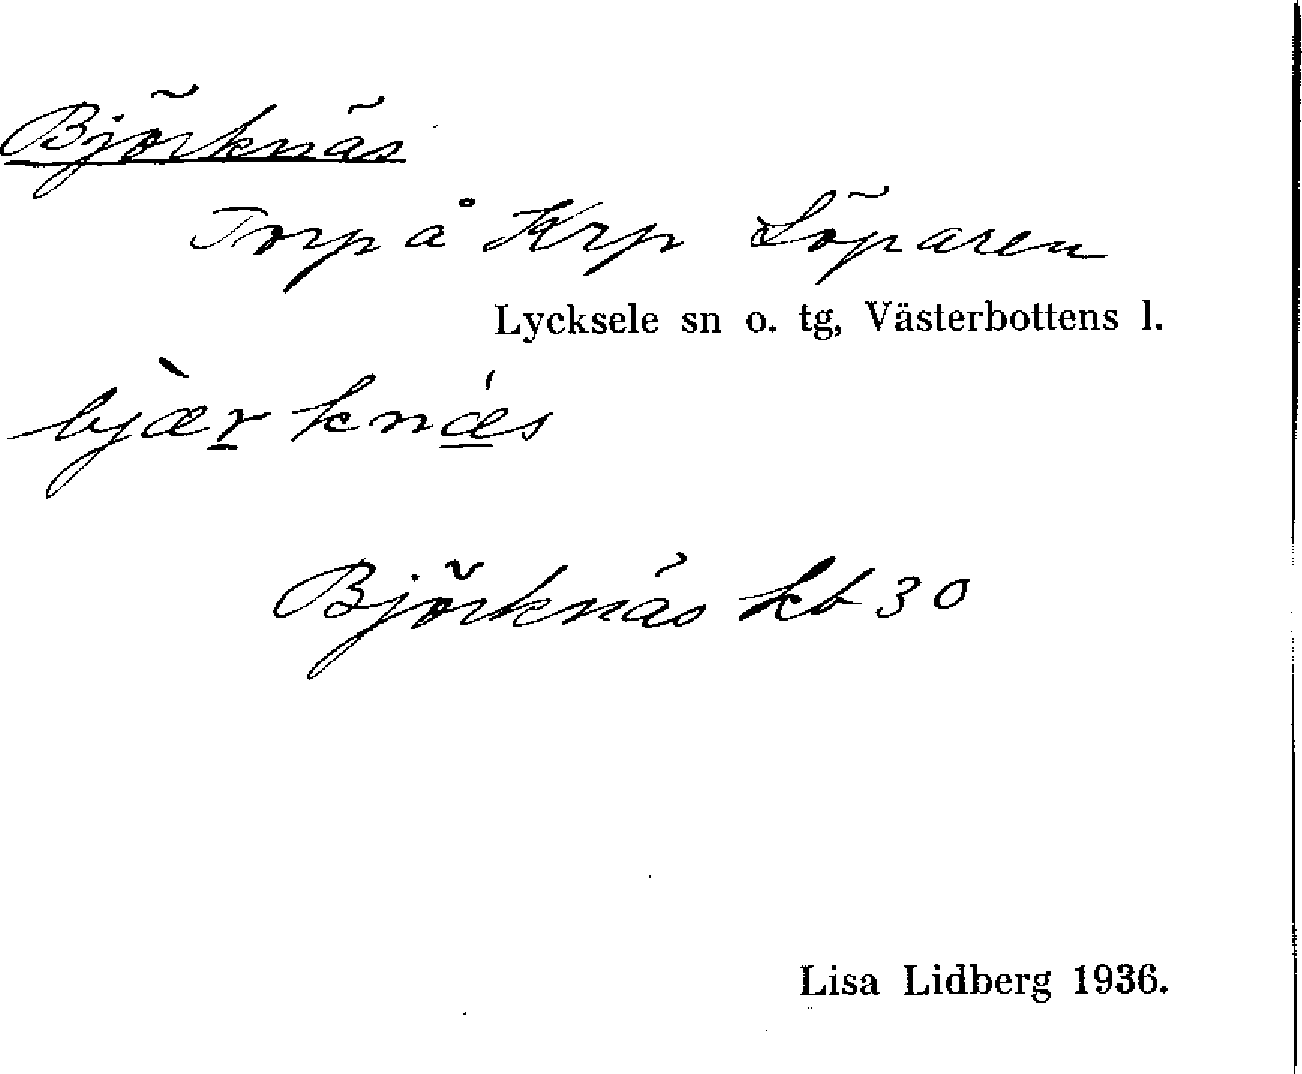 Björknäs
Torp å Krp Löparen
Lycksele sn o. tg, Västerbottens l.
bjæ̀r knǽs
Björknäs kb 30
Lisa Lidberg 1936.